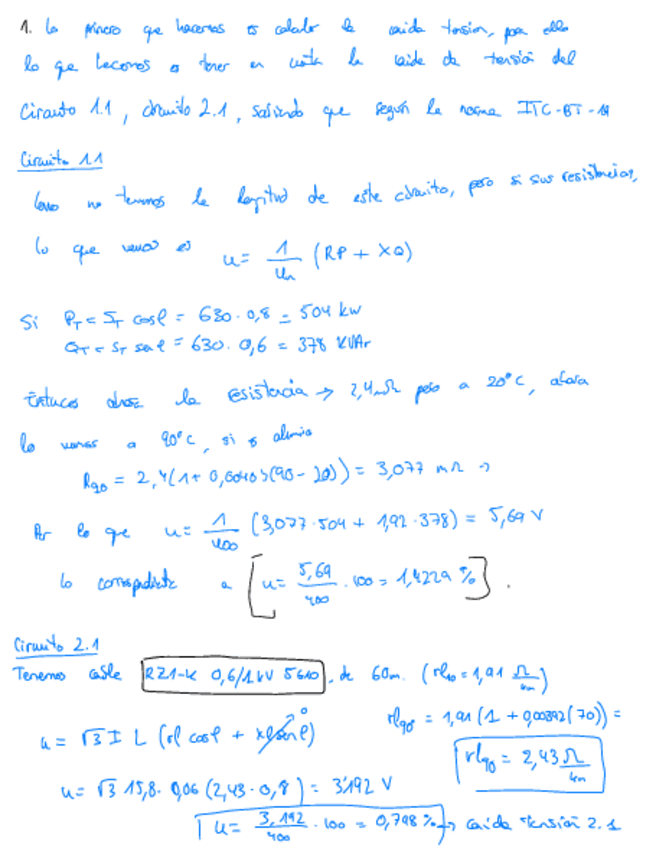 1. Lo primero que hacemos es calcular la caida tension, para ello
lo que hacemos es tener en cuenta la caida de tensión del
Circuito 1.1, circuito 2.1, sabiendo que según la norma ITC-BT-19
Circuito 1.1
Como no tenemos la longitud de este circuito, pero si sus resistencias,
lo que vemos es u = 1/Un (RP + XQ)
Si PT = ST cosφ = 630 · 0,8 = 504 kW
QT = ST senφ = 630 · 0,6 = 378 KVAr
Entonces la resistencia → 2,4mΩ pero a 20°C, ahora
lo vemos a 90°C, si es aluminio
R90 = 2,4(1 + 0,00403(90 - 20)) = 3,077 mΩ →
Por lo que u = 1/400 (3,077 · 504 + 1,92 · 378) = 5,69 V
lo correspondiente a [u = 5,69/400 · 100 = 1,4229 %].
Circuito 2.1
Tenemos cable RZ1-K 0,6/1kV 5G10, de 60m. (rl20 = 1,91 Ω/km)
rl90 = 1,91 (1 + 0,00392(70)) =
u = √3 I L (rl cosφ + xl senφ) 0
rl90 = 2,43 Ω/km
u = √3 15,8 · 0,06 (2,43 · 0,8) = 3,192 V
u = 3,192/400 · 100 = 0,798 % → caida tensión 2.1